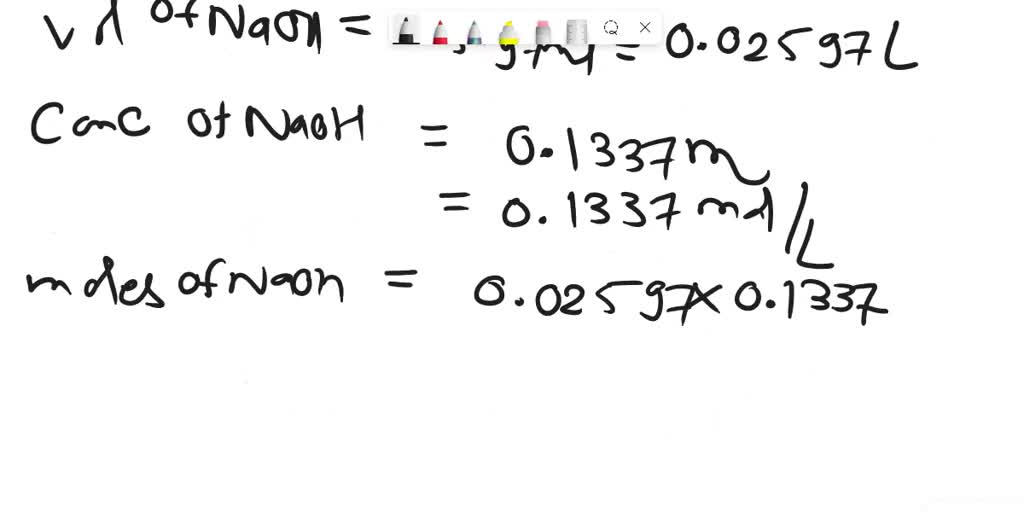 Vol of NaOH = = 0.02597 L
Conc of NaOH = 0.1337 m
= 0.1337 mol/L
moles of NaOH = 0.02597 × 0.1337